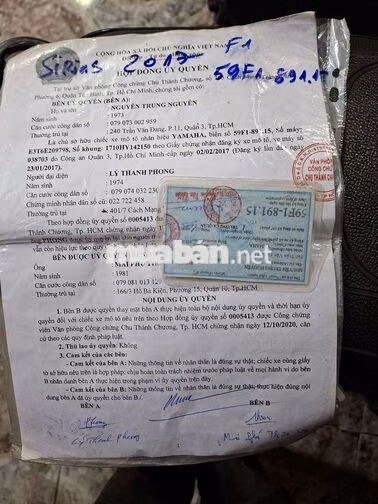 CỘNG HÒA XÃ HỘI CHỦ NGHĨA VIỆT NAM
Sirius 2017 F1
HỢP ĐỒNG ỦY QUYỀN
59F1-891.15
Tại trụ sở Văn phòng Công chứng Chu Thành Chương,
Phường 6, Quận Tân Bình, Tp.Hồ Chí Minh, chúng tôi gồm có:
BÊN ỦY QUYỀN (BÊN A):
NGUYỄN TRUNG NGUYÊN
1973
Căn cước công dân số 079 073 002 959
Thường trú tại 240 Trần Văn Đang, P.11, Quận 3, Tp.HCM
Là chủ sở hữu chiếc xe mô tô nhãn hiệu YAMAHA, biển số 59F1-89 .15, Số máy:
E3T6E209798, Số khung: 1710HY142150 theo Giấy chứng nhận đăng ký xe mô tô, xe máy số
038703 do Công an Quận 3, Tp.Hồ Chí Minh cấp ngày 02/02/2017 (Đăng ký lần đầu ngày
23/01/2017).
Người đại diện : LÝ THANH PHONG
1974
Căn cước công dân số 079 074 032 230
Chứng minh nhân dân số 022 722 458
Thường trú tại 401/7 Cách Mạng
Theo hợp đồng ủy quyền số 0005413 được Công
Thành Chương, Tp.HCM chứng nhận ngày
PHONG
BÊN ĐƯỢC ỦY
Ông MAI PHÚ
1981
Căn cước công dân số 079 081 013
Thường trú tại 166/3 Hồ Bá Kiện, Phường 15, Quận 10, Tp.HCM
59F1-891.15
VĂN PHÒNG
CÔNG CHỨNG
CHU THÀNH CHƯƠNG
muaban.net
NỘI DUNG ỦY QUYỀN
1. Bên B được quyền thay mặt bên A thực hiện toàn bộ nội dung ủy quyền và thời hạn ủy
quyền đối với chiếc xe mô tô nêu trên theo Hợp đồng ủy quyền số 0005413 được Công chứng
viên Văn phòng Công chứng Chu Thành Chương, Tp. HCM chứng nhận ngày 12/10/2020, căn
cứ theo các quy định pháp luật.
2. Thù lao ủy quyền: Không
3. Cam kết của các bên:
- Cam kết của bên A: Những thông tin về nhân thân là đúng sự thật; chiếc xe cùng giấy
tờ sở hữu nêu trên là hợp pháp; chịu hoàn toàn trách nhiệm trước pháp luật về mọi hành vi do bên
B nhân danh bên A thực hiện trong phạm vi ủy quyền trên đây.
- Cam kết của bên B: Những thông tin về nhân thân là đúng sự thật, thực hiện đúng nội
dung bên A đã ủy quyền cho bên B./.
BÊN A BÊN B
Lý Thanh Phong